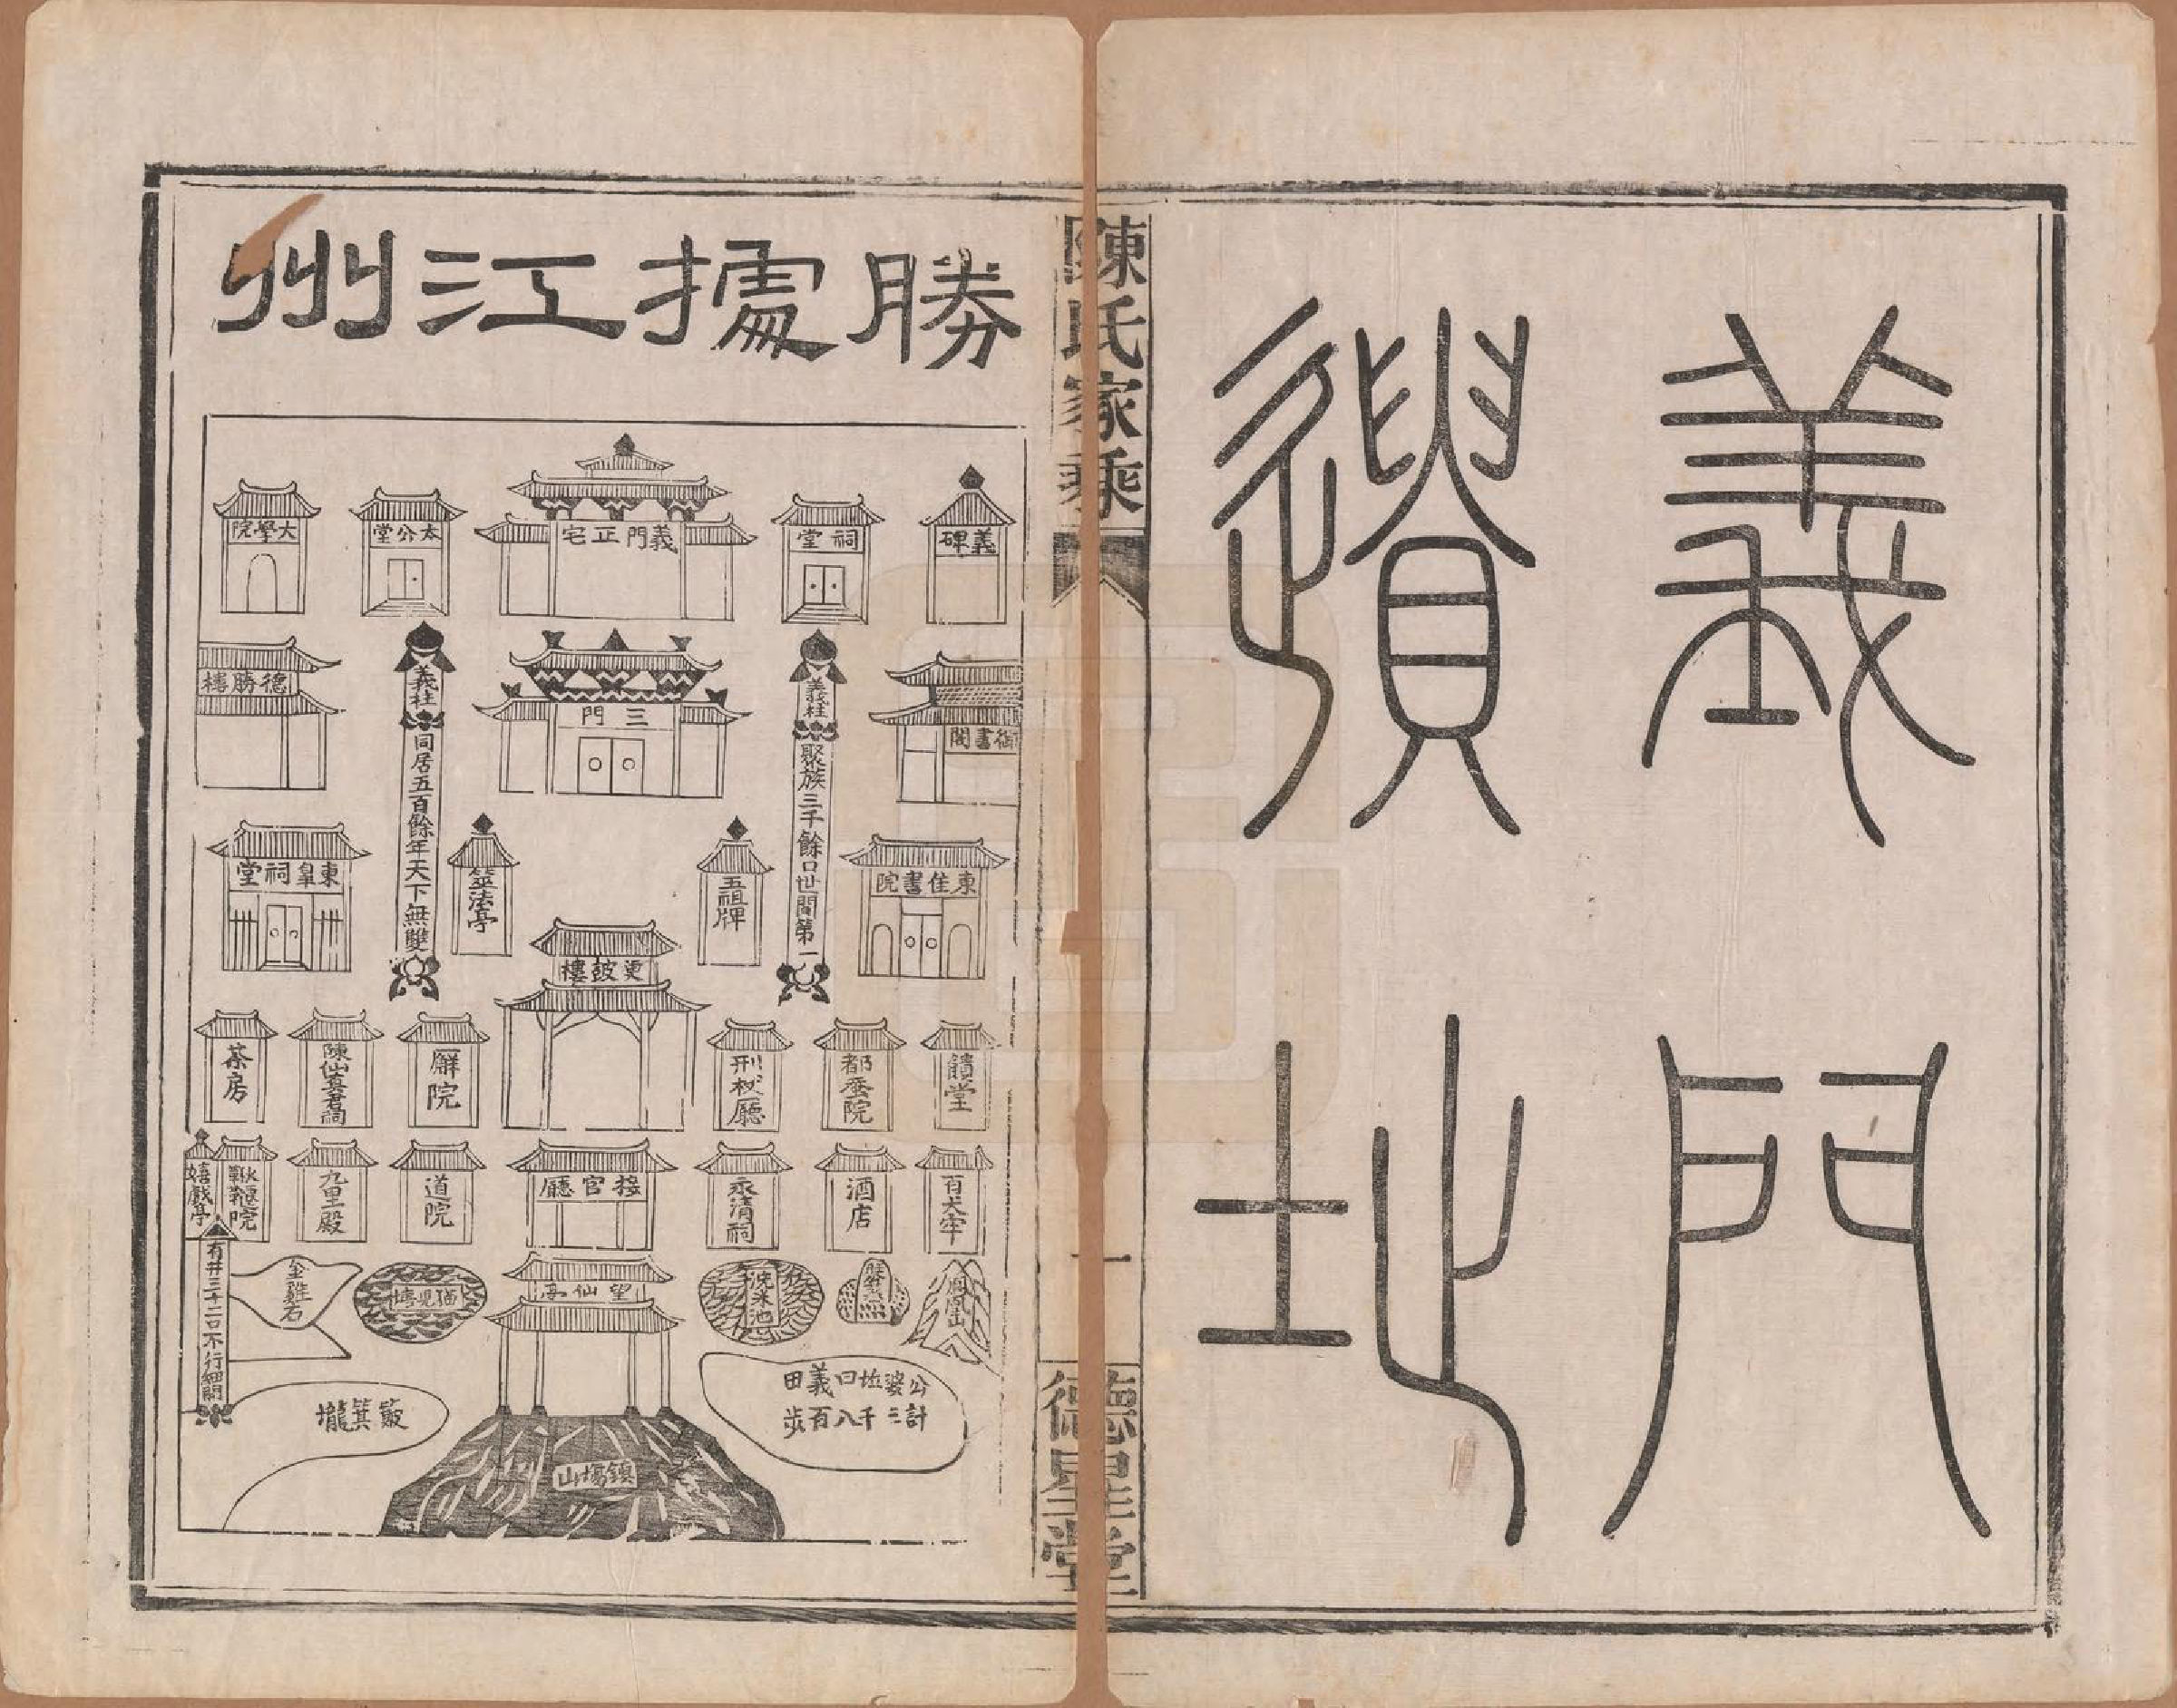 義門
遺址
陳氏家乘
一
德星堂
勝據江州
義碑
祠堂
義門正宅
太公堂
大學院
御書閣
義柱
聚族三千餘口世間第一
三門
義柱
同居五百餘年天下無雙
德勝樓
東佳書院
五祖牌
筮法亭
東皇祠堂
更鼓樓
饋堂
都蚕院
刑杖廳
廨院
陳仙真君祠
茶房
有犬牢
酒店
永清祠
接官廳
道院
九里殿
鞦韆院
嬉戲亭
鳳凰山
洗米池
望仙亭
金雞石
有井三十二口不行細開
公婆坵口義田
計三千八百步
簸箕壠
鎮塲山